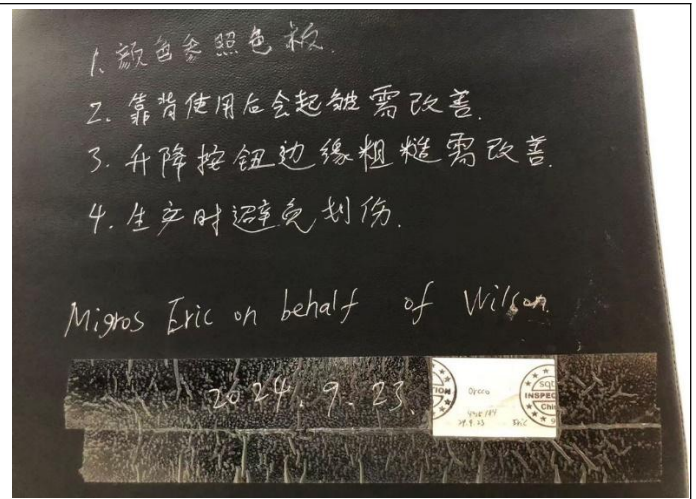 1. 颜色参照色板.
2. 靠背使用后会起皱需改善.
3. 升降按钮边缘粗糙需改善.
4. 生产时避免划伤.
Migros Eric on behalf of Wilson
2024.9.23.
sqt
INSPEC
Chi
Eric